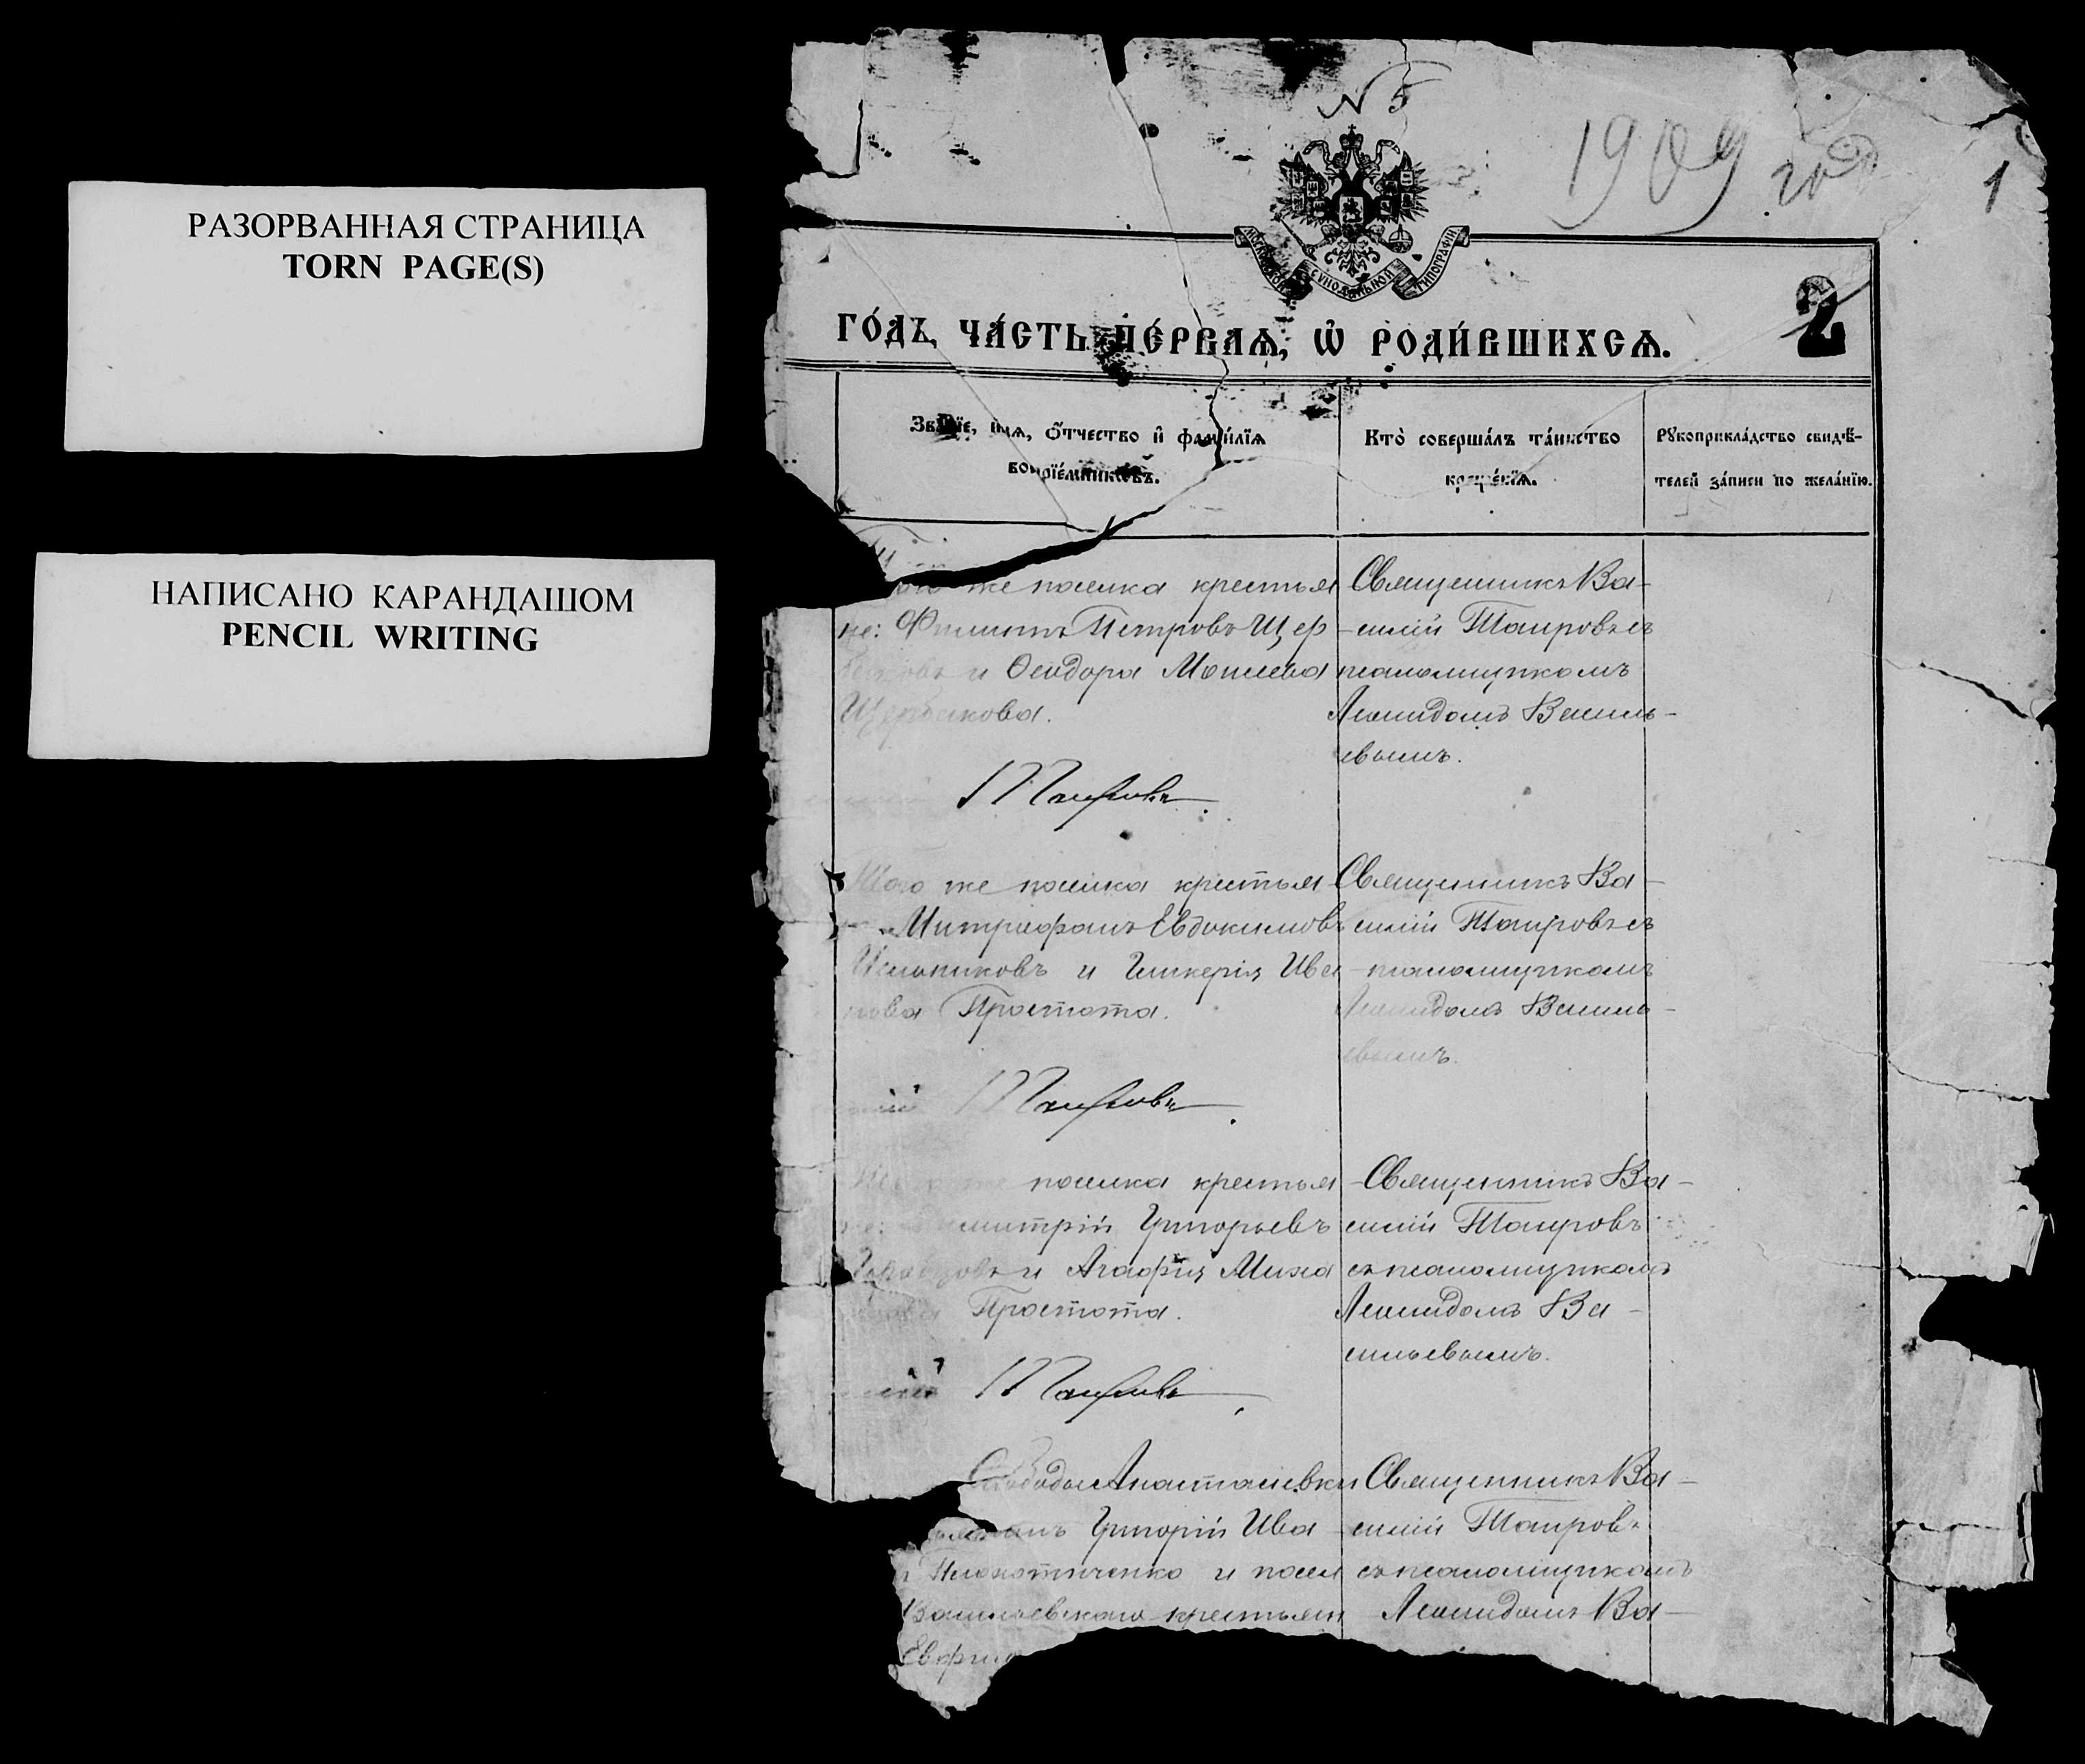 РАЗОРВАННАЯ СТРАНИЦА
TORN PAGE(S)
НАПИСАНО КАРАНДАШОМ
PENCIL WRITING
N 5
1909 год
1
МОСКОВСКОЙ СУНОДАЛЬНОЙ ТИПОГРАФІИ
2
ГО́ДЪ, ЧА́СТЬ ПЕ́РВАѦ, Ѡ҆ РОДИ́ВШИХСѦ.
Зва́нїе, и́мѧ, ѻ҆́тчество и҆ фами́лїѧ
воспрїе́мникѡвъ.
Кто̀ соверша́лъ та́инство
креще́нїѧ.
Рꙋкоприкла́дство свидѣ́-
телей за́писи по жела́нїю.
же поселка крестья
не: Филиппъ Петровъ Щер
и Ѳеодора Моисеева
Щербакова.
Таировъ
Священникъ Ва-
-силій Таировъ съ
псаломщикомъ
Леонидомъ Василь-
евымъ.
Того же поселка крестья
Митрофанъ Евдокимовъ
и Гликерія Ива
нова Простота.
Таировъ
Священникъ Ва-
силій Таировъ съ
-псаломщикомъ
Леонидомъ Василь-
евымъ.
поселка крестья
Григорьевъ
и Агафія Миха
Простота.
Таировъ
-Священникъ Ва-
силій Таировъ
съ псаломщикомъ
Леонидомъ Ва-
сильевымъ.
Слободы Анастасіевки
Григорій Ива
и посел
Васильевскаго крестьян
Священникъ Ва-
силій Таировъ
съ псаломщикомъ
Леонидомъ Ва-